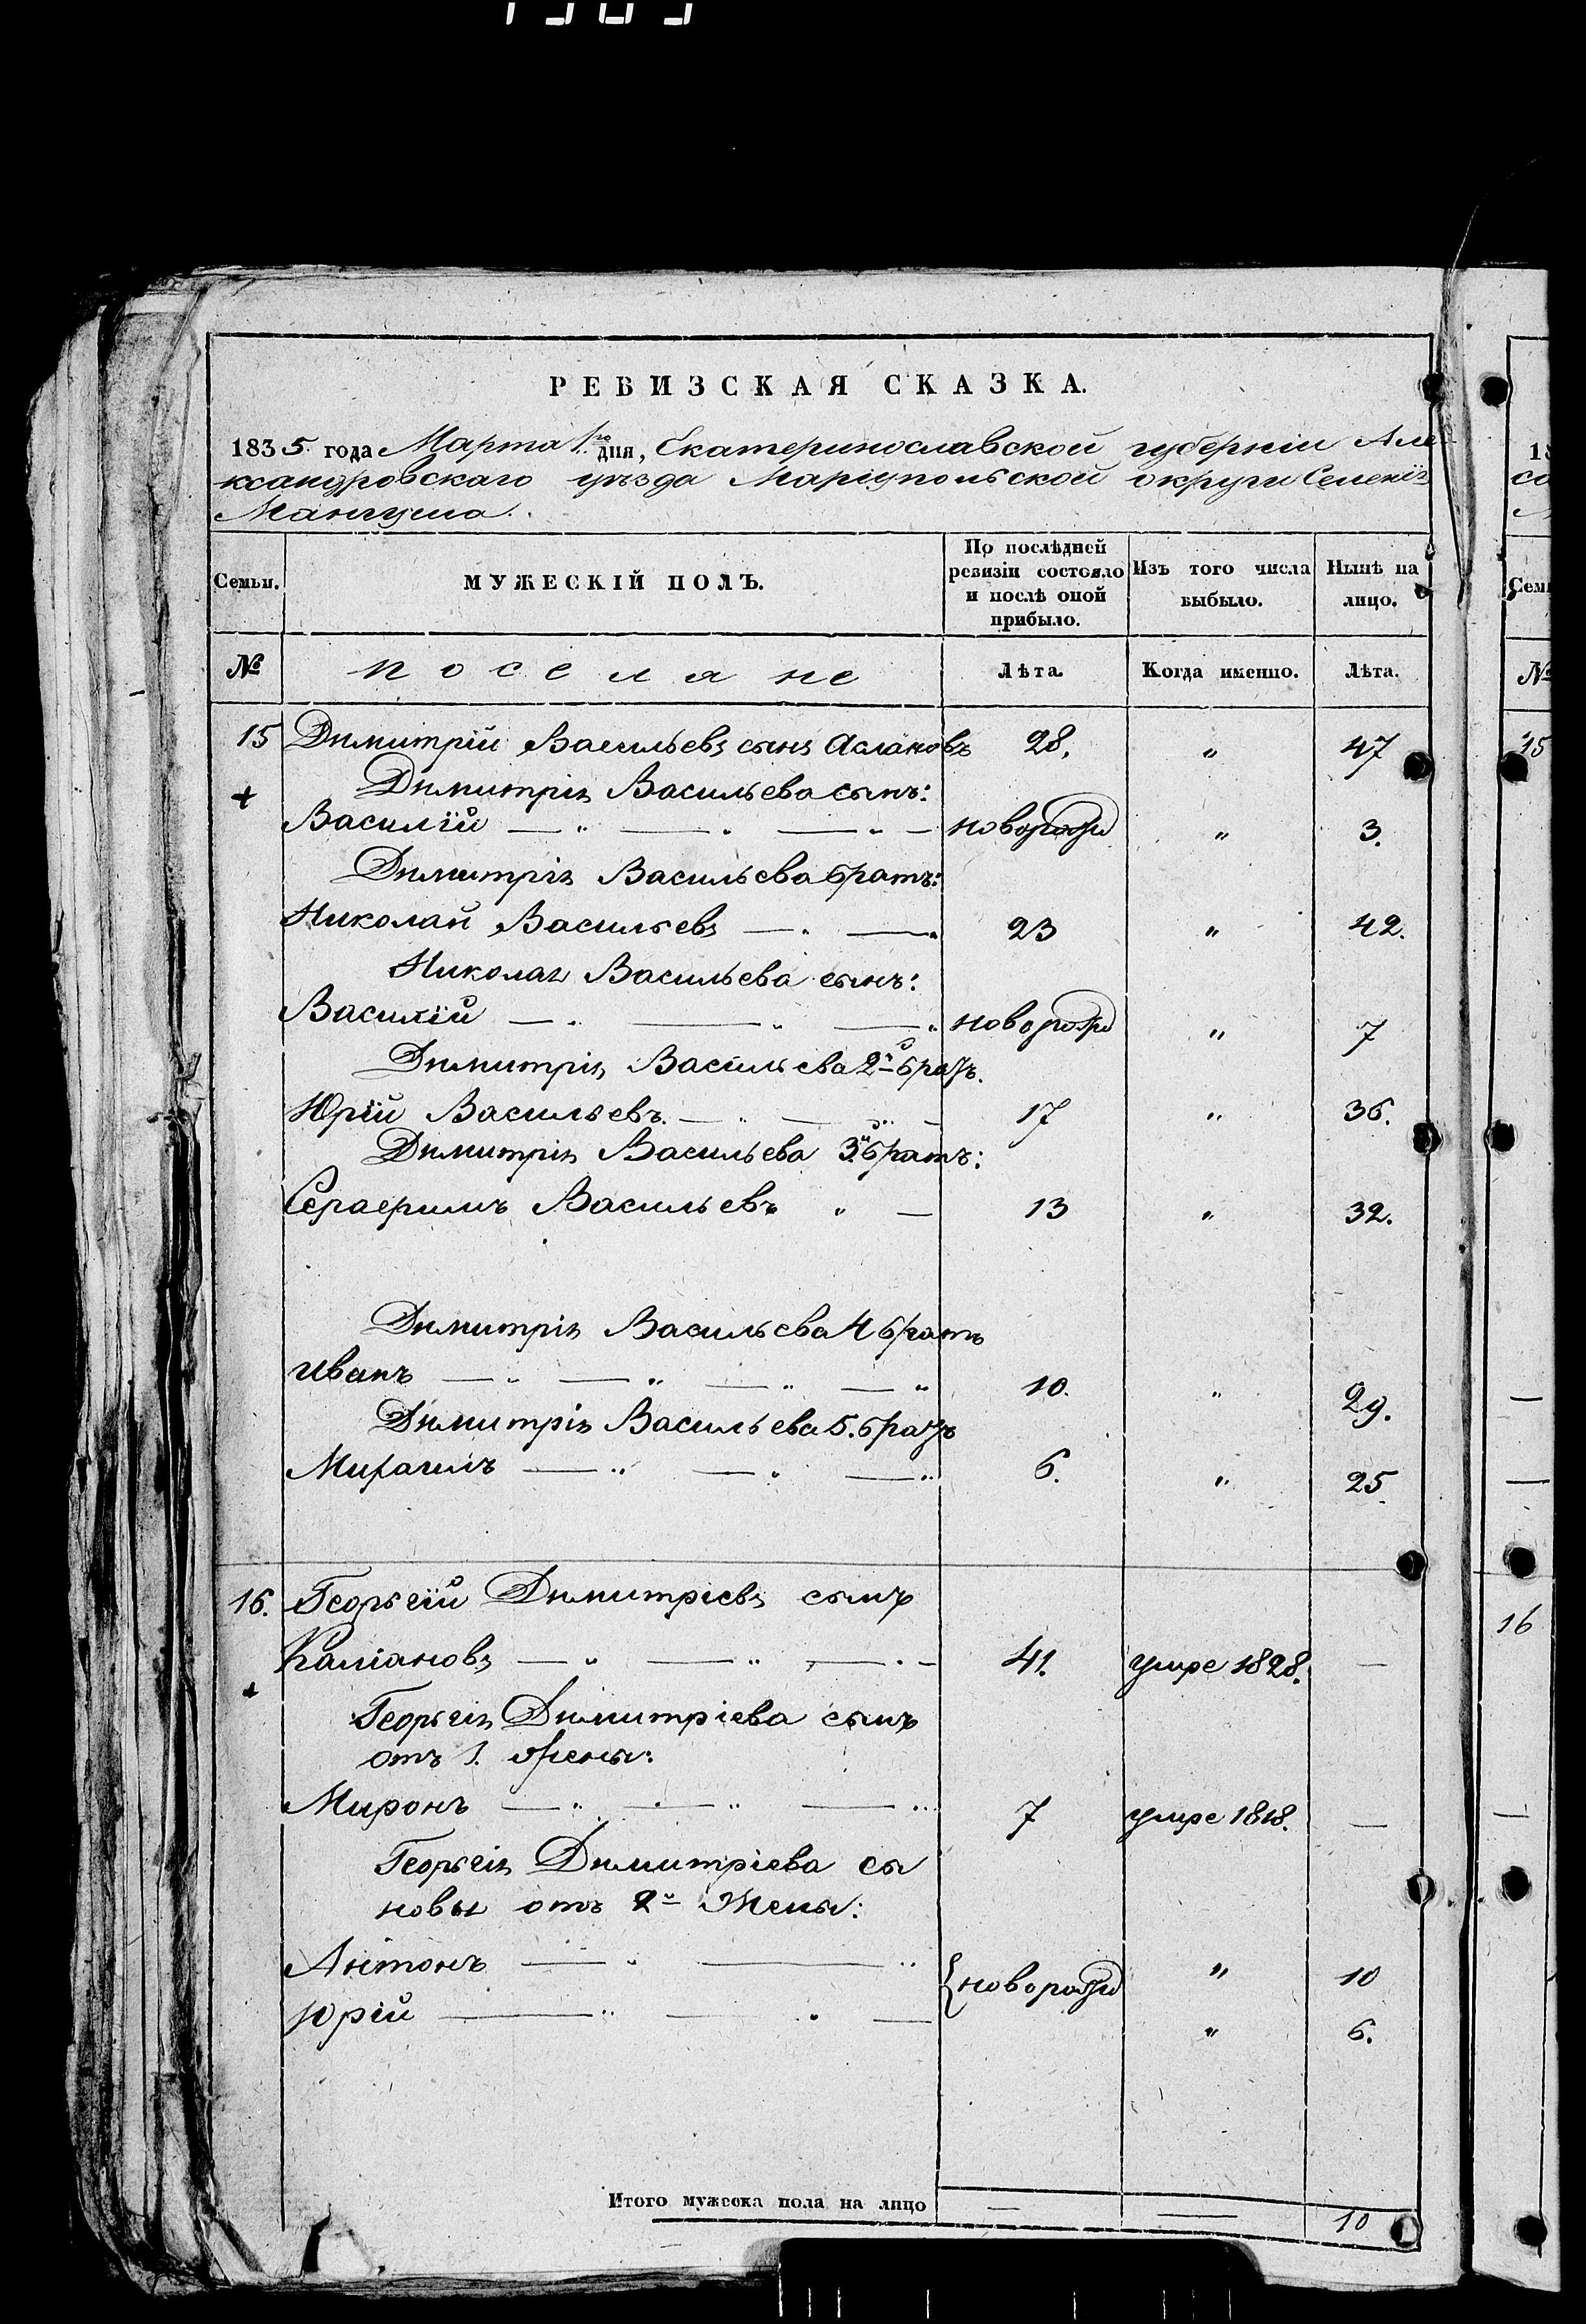 РЕВИЗСКАЯ СКАЗКА.
1835 года Марта 1го дня, Екатеринославской губерніи Але
ксандровскаго уѣзда Маріупольской округи Селенія
Мангуша.
Семьи. МУЖЕСКІЙ ПОЛЪ. По послѣдней ревизіи состояло и послѣ оной прибыло. Изъ того числа выбыло. Нынѣ на лицо.
№ поселяне Лѣта. Когда именно. Лѣта.
15 Димитрій Васильевъ сынъ Аслановъ 28. " 47
Димитрія Васильева сынъ:
+ Василій — " — " — " — новорожд " 3.
Димитрія Васильева братъ:
Николай Васильевъ — " — " 23 " 42.
Николая Васильева сынъ:
Василій — " — " — " новорожд " 7
Димитрія Васильева 2й братъ.
Юрій Васильевъ. — " — " — 17 " 36.
Димитрія Васильева 3й братъ:
Серафимъ Васильевъ " — 13 " 32.
Димитрія Васильева 4 братъ
Иванъ — " — " — " — " 10. " 29.
Димитрія Васильева 5. братъ
Михаилъ — " — " — " 6. " 25
16. Георгій Димитріевъ сынъ
Каліановъ — " — " — " — 41. умре 1828. —
+ Георгія Димитріева сынъ
отъ 1. жены:
Миронъ — " — " — " 7 умре 1818. —
Георгія Димитріева сы
новья отъ 2й жены:
Антонъ — " — " { новорожд " 10
Юрій — " — " — " 6.
Итого мужеска пола на лицо — — 10
15
16